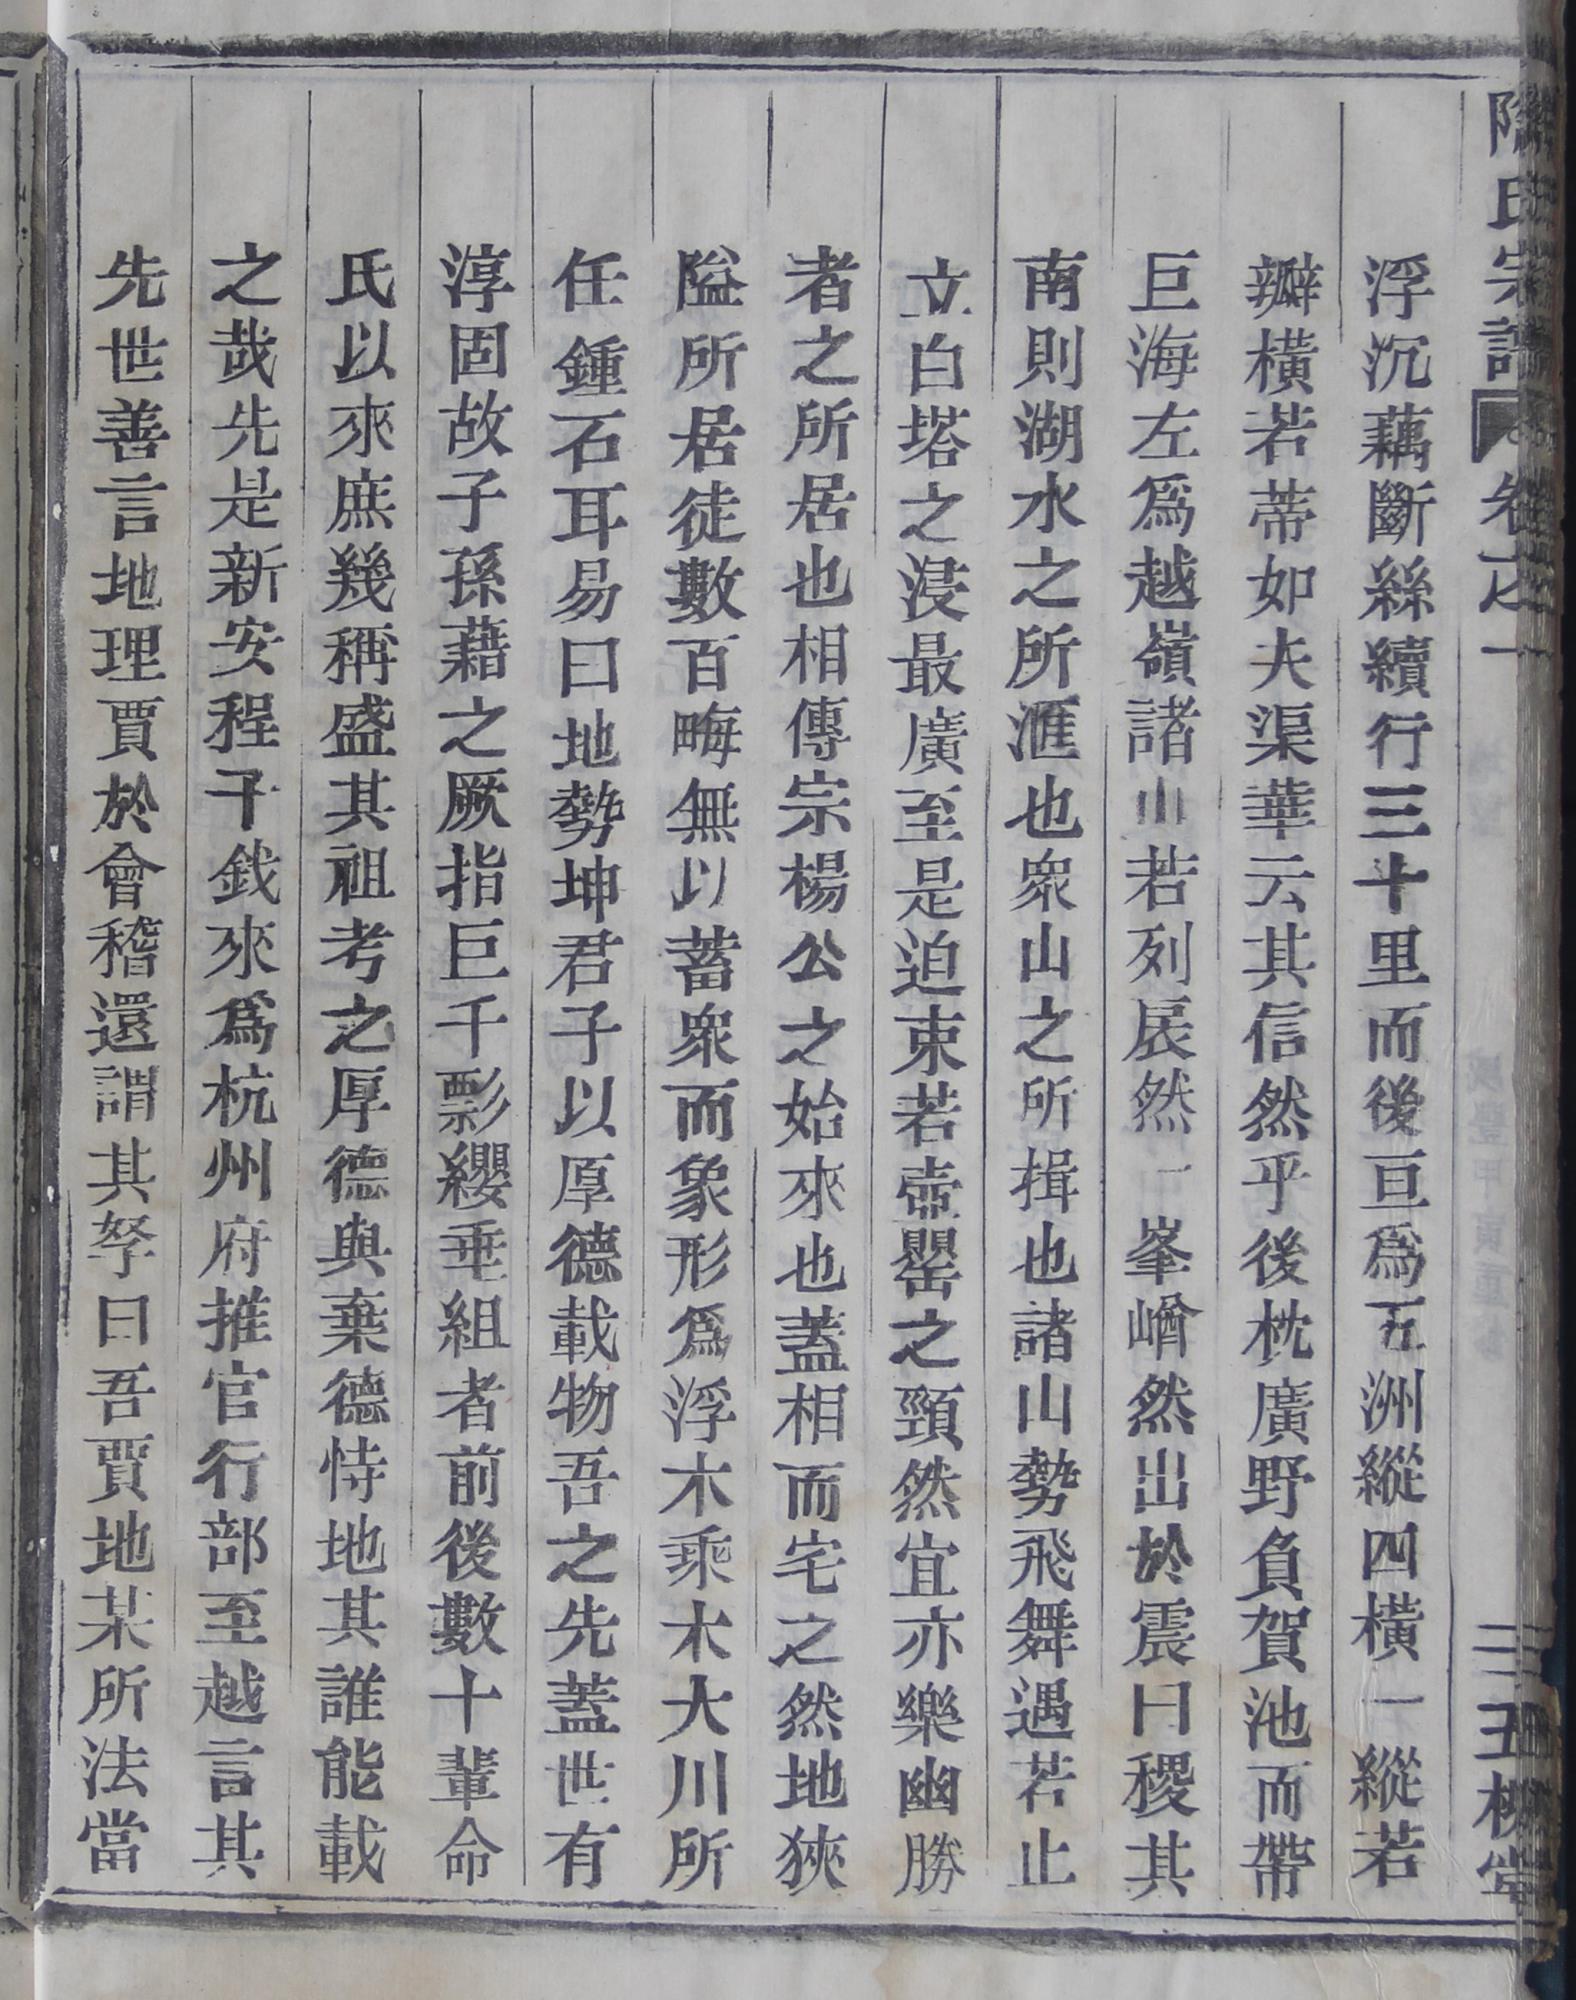 陶氏宗譜 卷之一 二 五柳堂
浮沉藕斷絲續行三十里而後亘爲五洲縱四橫一縱若
瓣橫若蒂如夫渠華云其信然乎後枕廣野負賀池而帶
巨海左爲越嶺諸山若列扆然一峯崷然出於震曰稷其
南則湖水之所滙也衆山之所揖也諸山勢飛舞遇若止
立白塔之浸最廣至是迫束若壺罌之頸然宜亦樂幽勝
者之所居也相傳宗楊公之始來也蓋相而宅之然地狹
隘所居徒數百畮無以蓄衆而象形爲浮木乘木大川所
任鍾石耳易曰地勢坤君子以厚德載物吾之先蓋世有
淳固故子孫藉之厥指巨千影纓垂組者前後數十輩命
氏以來庶幾稱盛其祖考之厚德與棄德恃地其誰能載
之哉先是新安程千鉞來爲杭州府推官行部至越言其
先世善言地理賈於會稽還謂其孥曰吾賈地某所法當